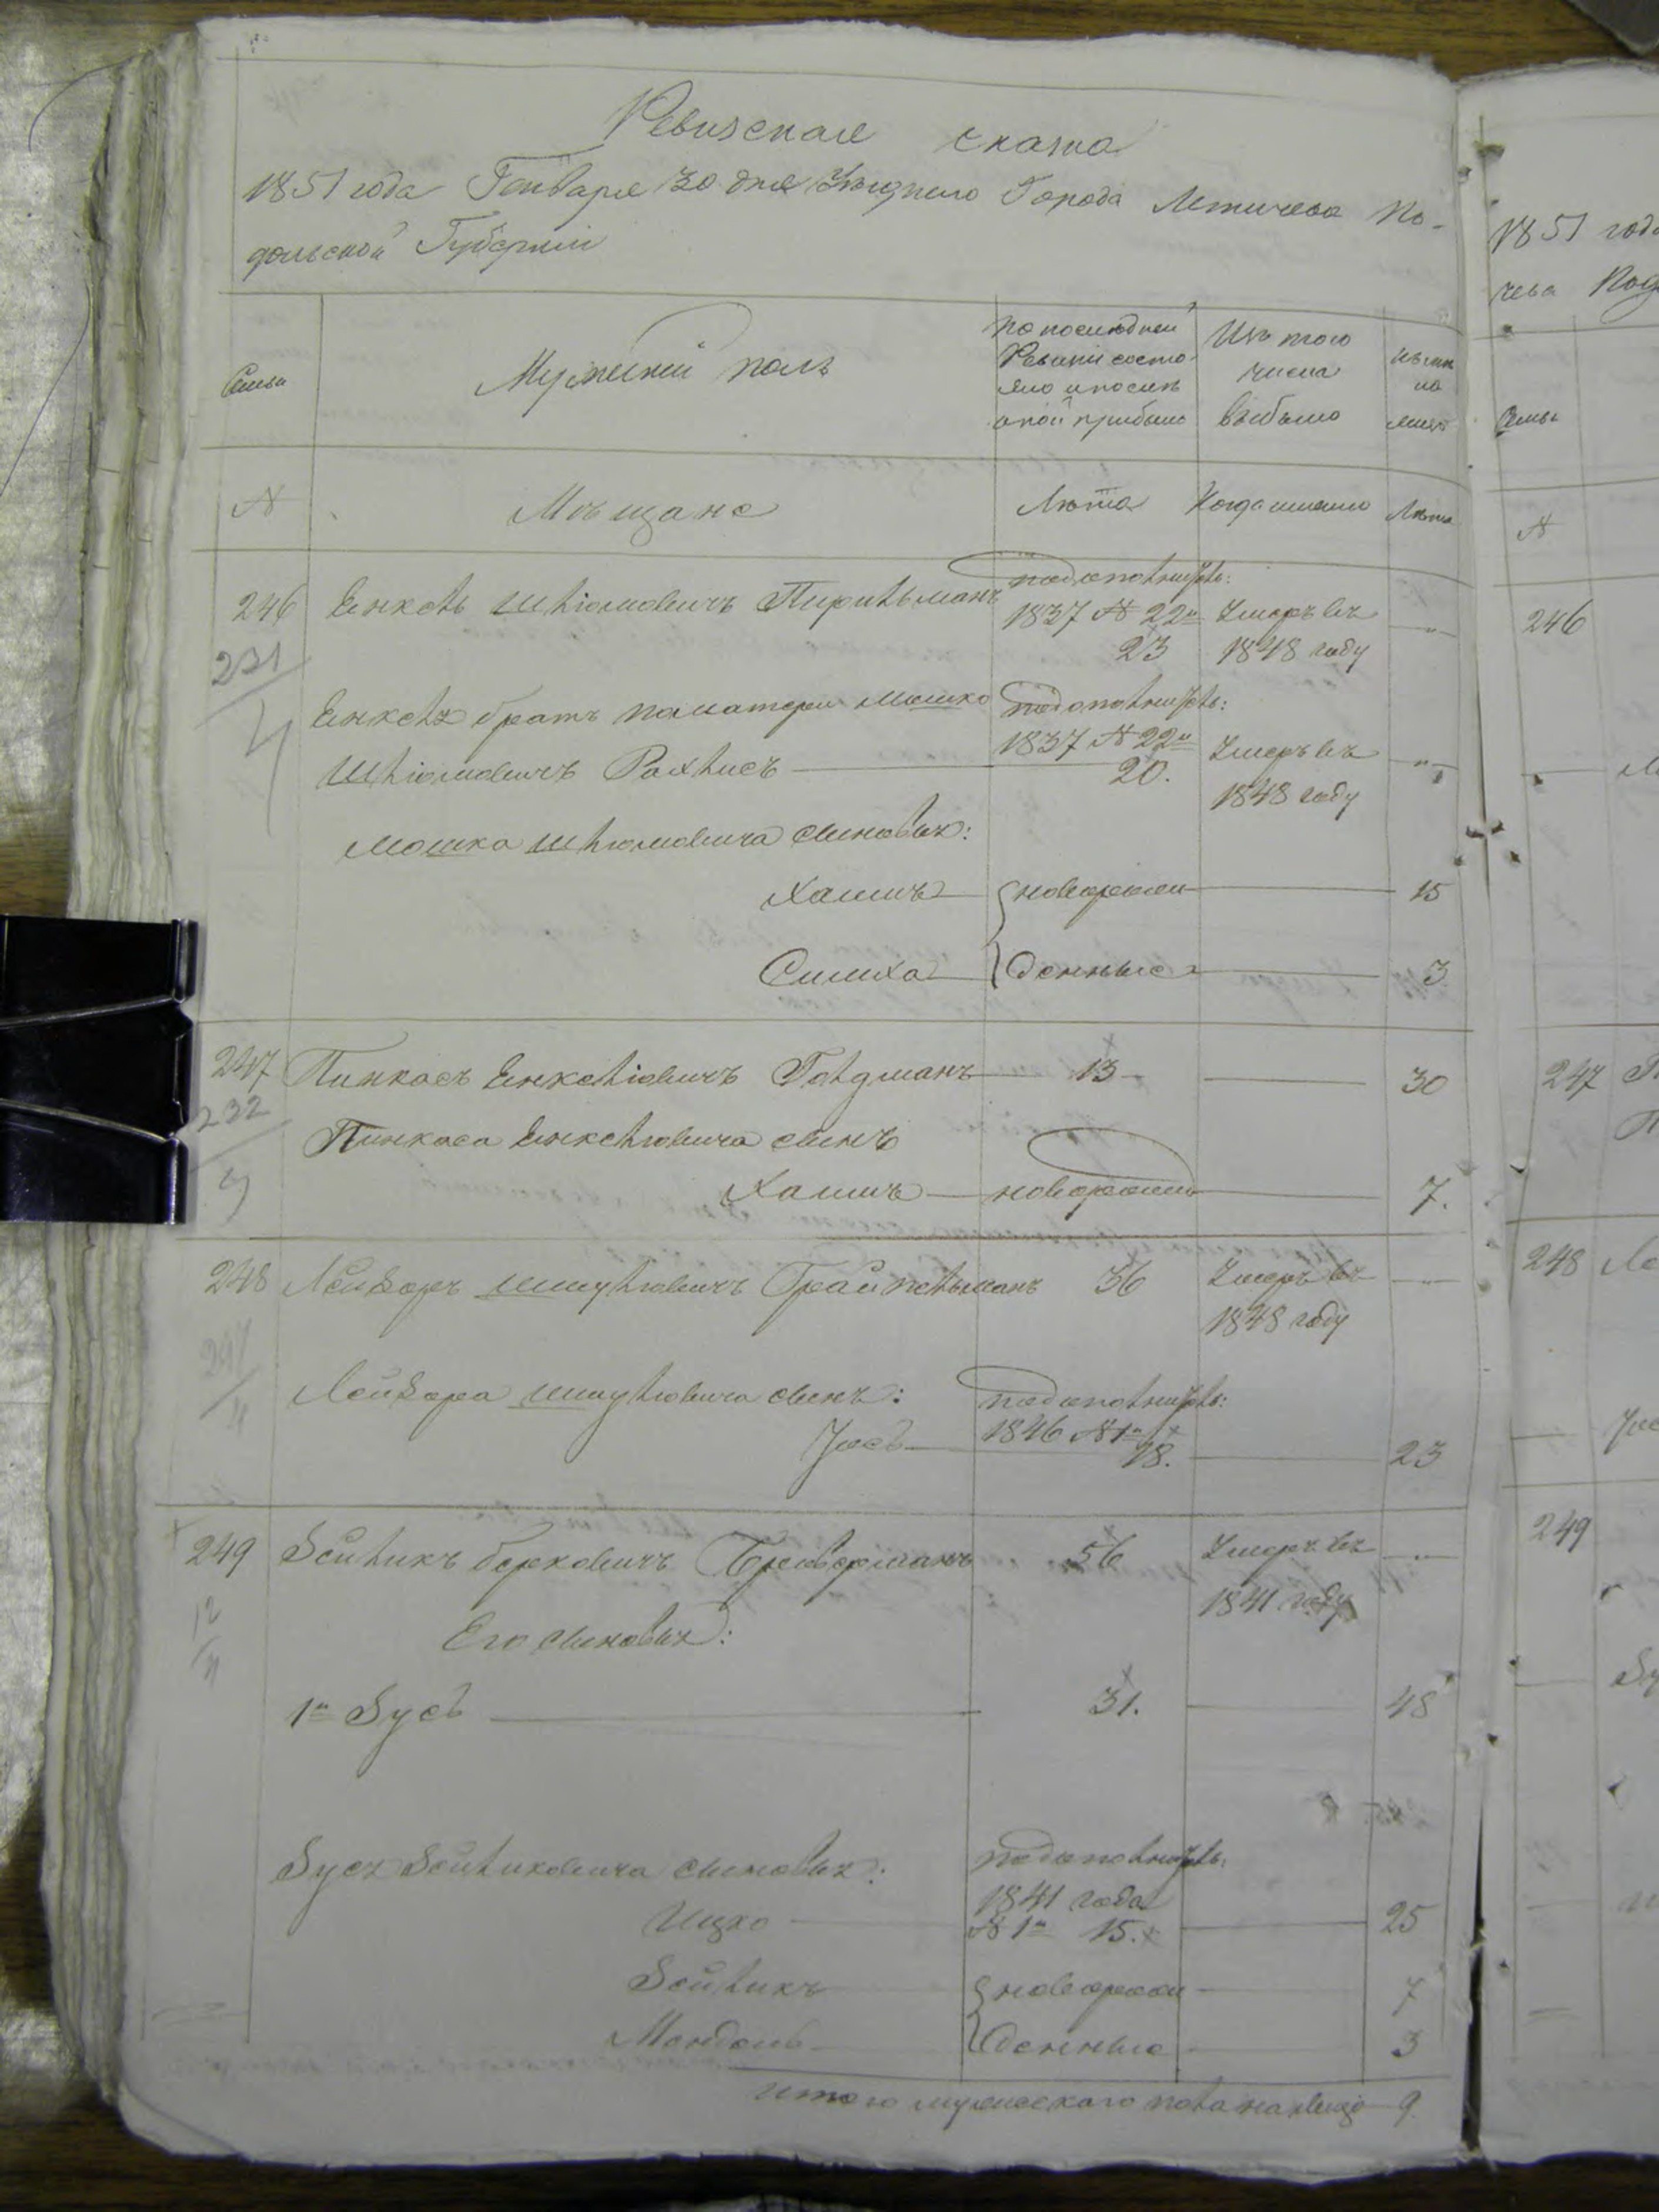 Ревизская сказка
1851 года Генваря 30 дня Уезднаго Города Летичева По-
дольской Губернiи
Семьи
Мужескiй полъ
По последней
Ревизiи состо-
яло и после
оной прибыло
Изъ того
числа
выбыло
Ныне
на
лицо
№
Мѣщане
Лѣта
Когда именно
Лѣта
246 Енкель Шлiомовичъ
по дополнит:
1837 № 22й
23
Умеръ въ
1848 году
231
4
Енкеля братъ по матери Мошко
Шлiомовичъ
по дополнит:
1837 № 22й
20.
Умеръ въ
1848 году
Мошка Шлiомовича сыновья:
Хаимъ новорож 15
Симха денные 3
247 Пинкасъ Енкелiовичъ Голдманъ 13 30
232
4
Пинкаса Енкелiовича сынъ
Хаимъ новорожд 7.
248 Лейзоръ Шмулiовичъ 36
Умеръ въ
1848 году
Лейзора Шмулiовича сынъ:
Iосъ
по дополнит:
1846 № 1й
18. 23
249 Зейликъ Берковичъ 56
Умеръ въ
1841 году
12
4
Его сыновья:
1й Зусь 31. 48
Зуся Зейликовича сыновья:
по дополнит:
1841 года
Ицко № 1й 15. 25
Зейликъ новорож 7
Мендель денные 3
Итого мужескаго пола на лицо 9
1851 года
чева Под
Семьи
№
246
247
248 Ле
249